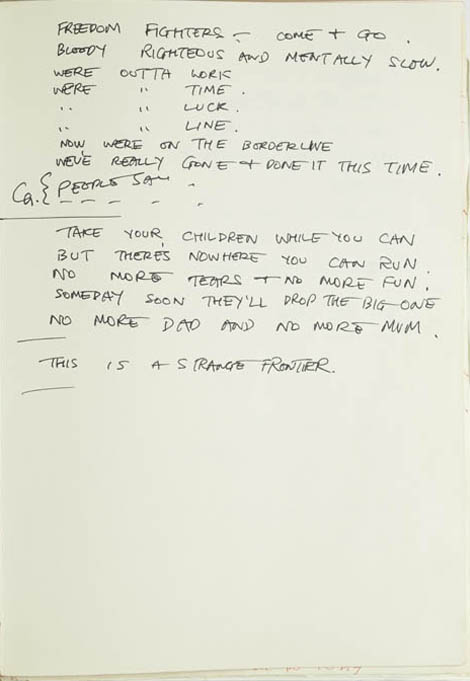 FREEDOM FIGHTERS - COME + GO.
BLOODY RIGHTEOUS AND MENTALLY SLOW.
WERE OUTTA WORK
WERE " TIME.
" " LUCK.
" " LINE.
NOW WERE ON THE BORDERLINE
WEVE REALLY GONE + DONE IT THIS TIME.
{ PEOPLE SAY
TAKE YOUR CHILDREN WHILE YOU CAN
BUT THERE'S NOWHERE YOU CAN RUN.
NO MORE TEARS + NO MORE FUN.
SOMEDAY SOON THEY'LL DROP THE BIG ONE
NO MORE DAD AND NO MORE MUM.
THIS IS A STRANGE FRONTIER.